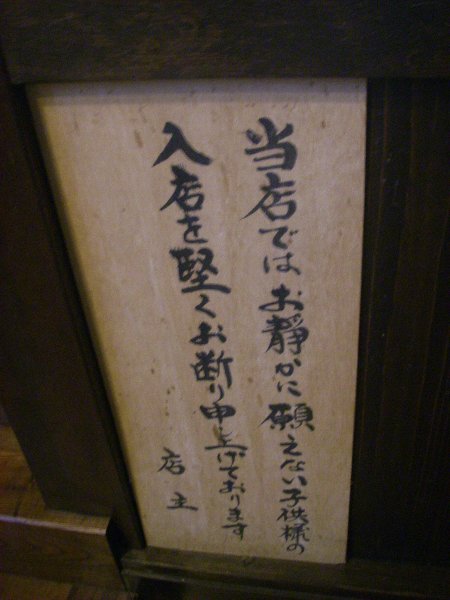 当店ではお静かに願えない子供様の
入店を堅くお断り申し上げております
店主